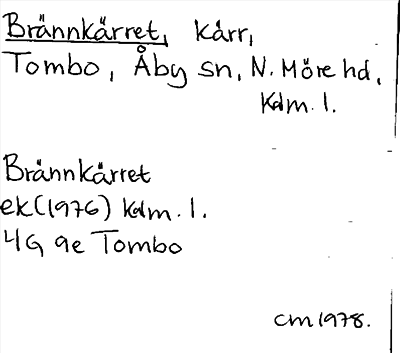 Brännkärret, kärr,
Tombo, Åby sn, N. Möre hd,
Kdm. l.
Brännkärret
ek (1976) Kdm. l.
4G 9e Tombo
cm 1978.